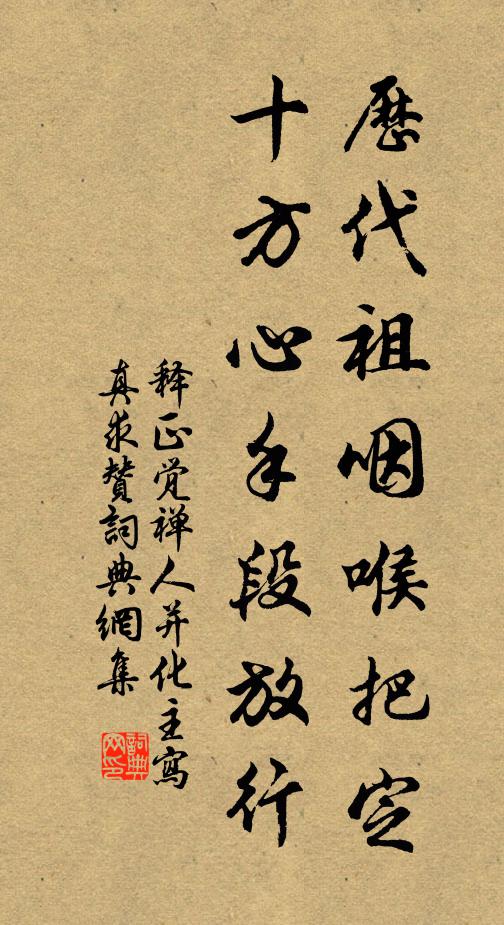 歷代祖咽喉把定
十方心手段放行
释正觉禅人并化主寫
真求賛詞典網集
詞典網印